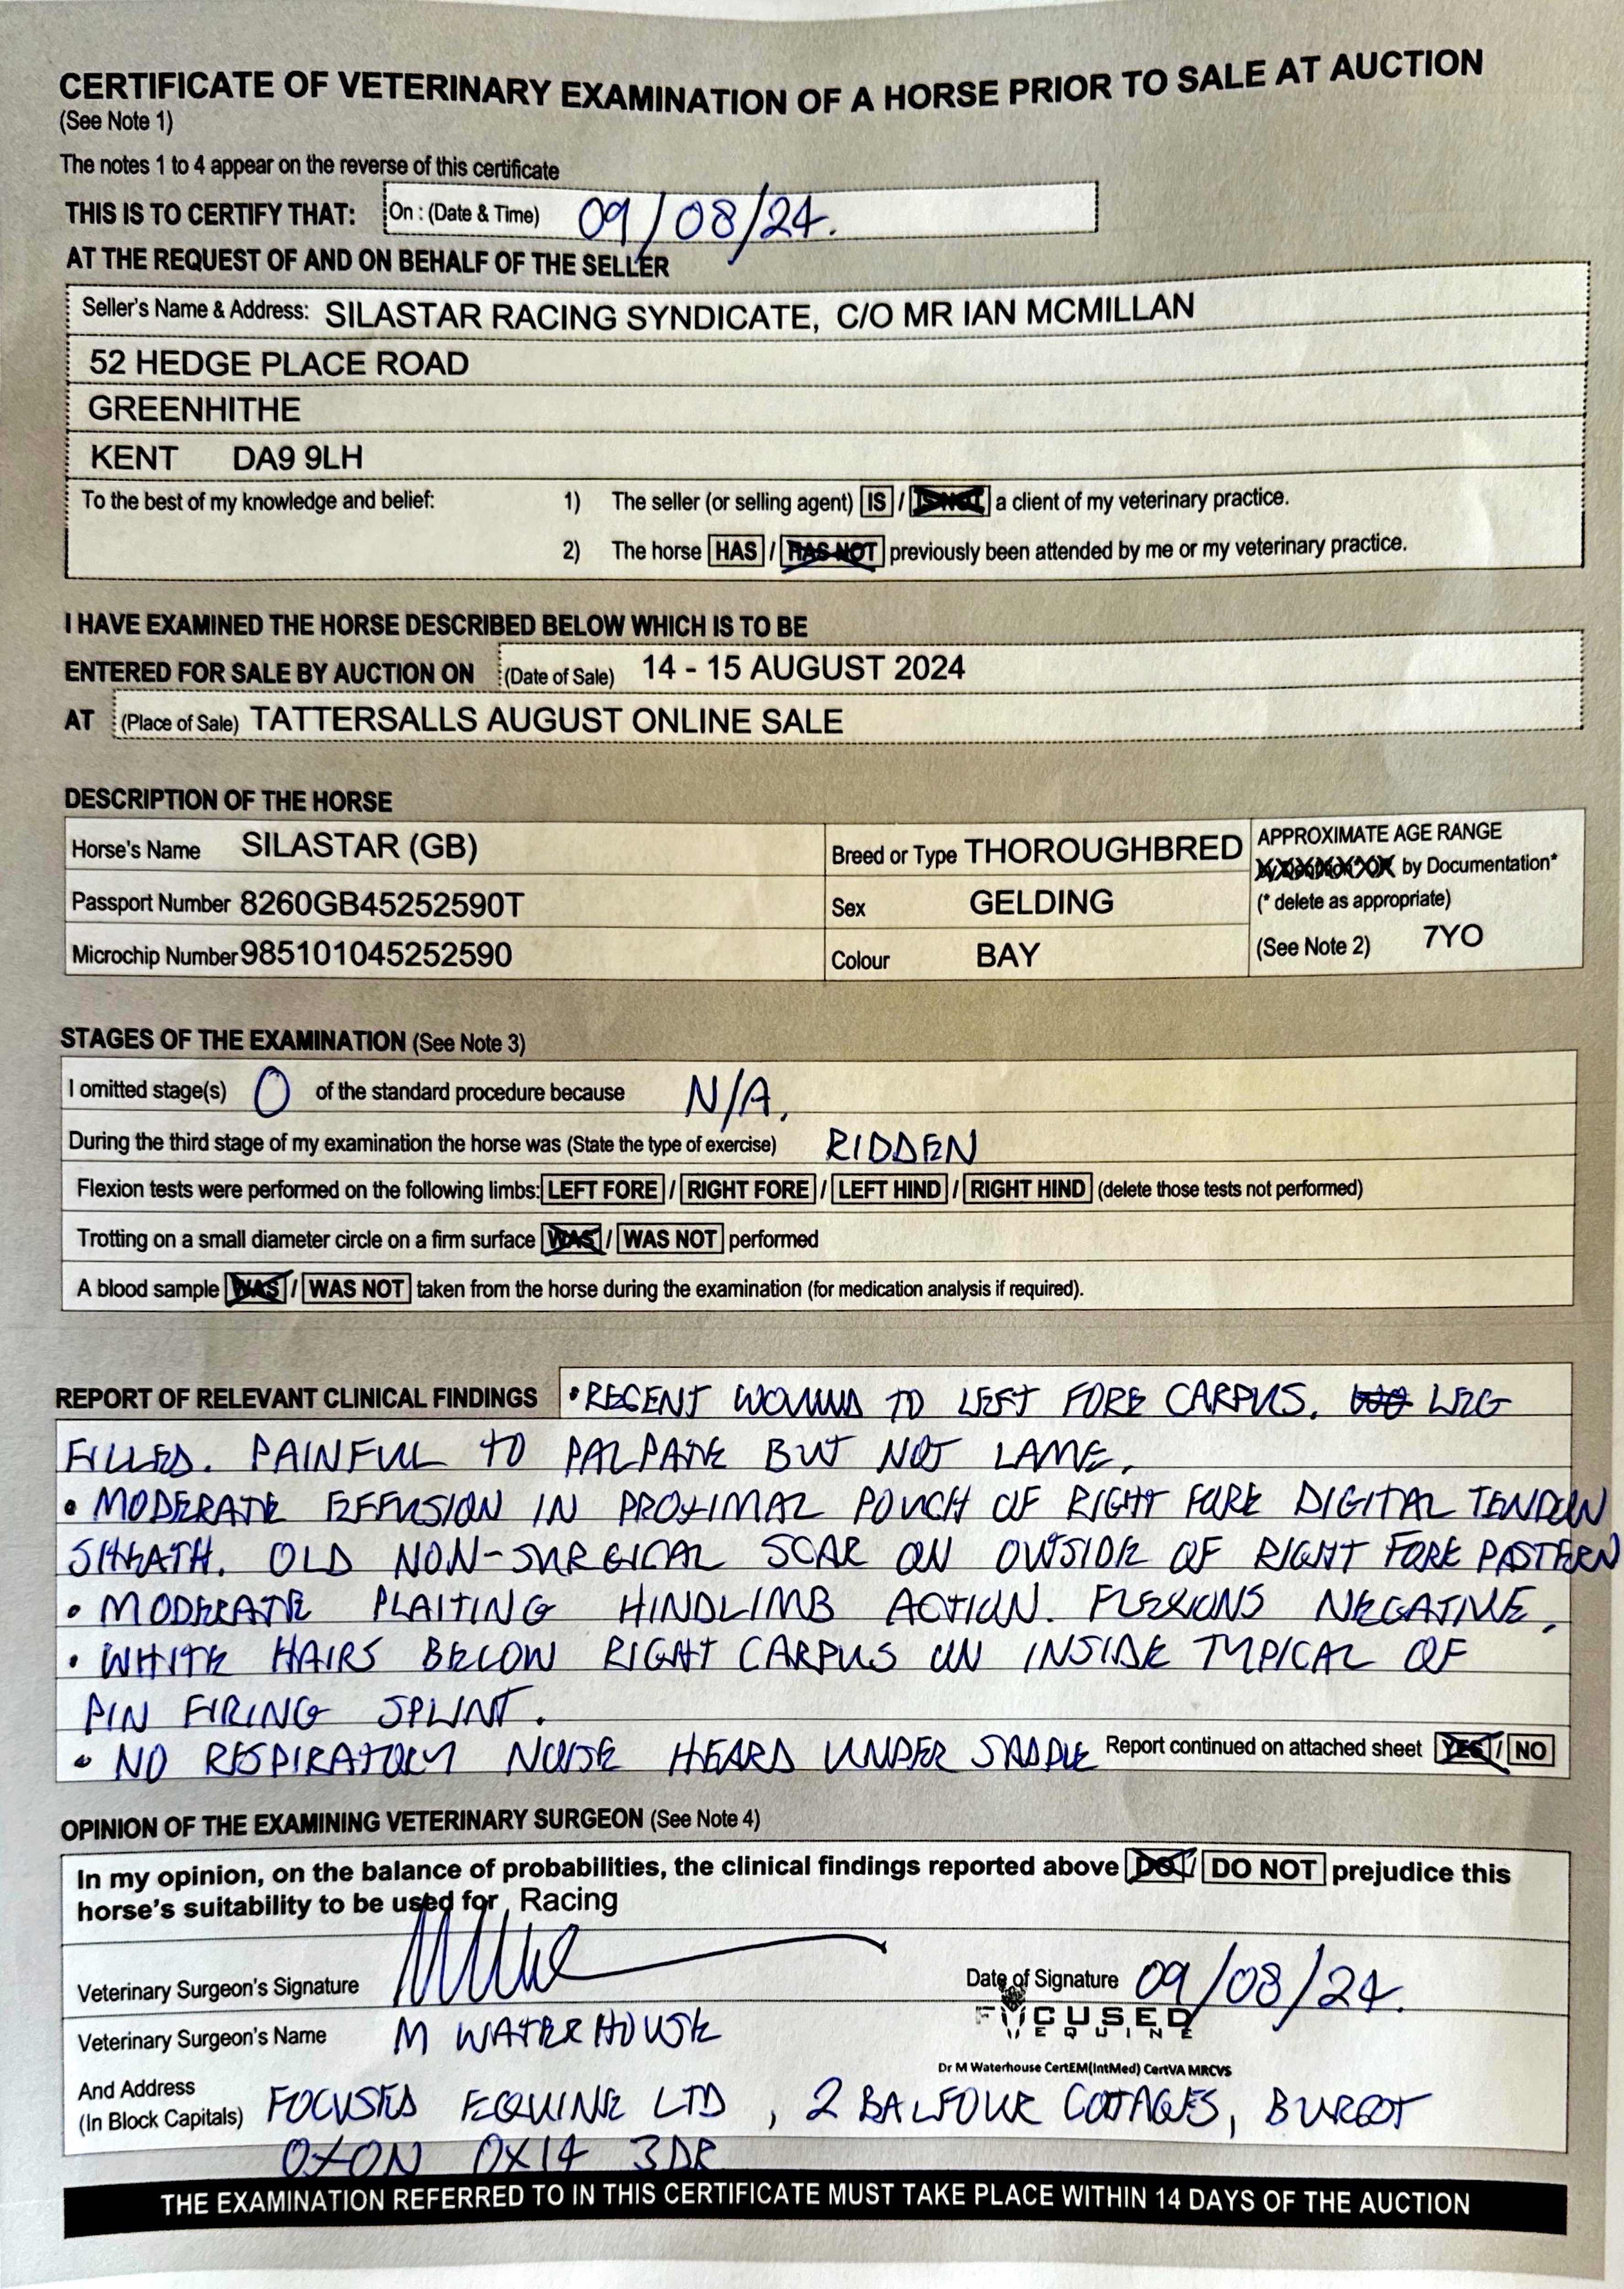 CERTIFICATE OF VETERINARY EXAMINATION OF A HORSE PRIOR TO SALE AT AUCTION
(See Note 1)
The notes 1 to 4 appear on the reverse of this certificate
THIS IS TO CERTIFY THAT: On : (Date & Time) 09/08/24.
AT THE REQUEST OF AND ON BEHALF OF THE SELLER
Seller's Name & Address: SILASTAR RACING SYNDICATE, C/O MR IAN MCMILLAN
52 HEDGE PLACE ROAD
GREENHITHE
KENT DA9 9LH
To the best of my knowledge and belief: 1) The seller (or selling agent) IS / IS NOT a client of my veterinary practice.
2) The horse HAS / HAS NOT previously been attended by me or my veterinary practice.
I HAVE EXAMINED THE HORSE DESCRIBED BELOW WHICH IS TO BE
ENTERED FOR SALE BY AUCTION ON (Date of Sale) 14 - 15 AUGUST 2024
AT (Place of Sale) TATTERSALLS AUGUST ONLINE SALE
DESCRIPTION OF THE HORSE
Horse's Name SILASTAR (GB) Breed or Type THOROUGHBRED APPROXIMATE AGE RANGE
by Documentation*
Passport Number 8260GB45252590T Sex GELDING (* delete as appropriate)
Microchip Number 985101045252590 Colour BAY (See Note 2) 7YO
STAGES OF THE EXAMINATION (See Note 3)
I omitted stage(s) 0 of the standard procedure because N/A.
During the third stage of my examination the horse was (State the type of exercise) RIDDEN
Flexion tests were performed on the following limbs: LEFT FORE / RIGHT FORE / LEFT HIND / RIGHT HIND (delete those tests not performed)
Trotting on a small diameter circle on a firm surface WAS / WAS NOT performed
A blood sample WAS / WAS NOT taken from the horse during the examination (for medication analysis if required).
REPORT OF RELEVANT CLINICAL FINDINGS • RECENT WOUND TO LEFT FORE CARPUS. LEG
FILLED. PAINFUL TO PALPATE BUT NOT LAME.
• MODERATE EFFUSION IN PROXIMAL POUCH OF RIGHT FORE DIGITAL TENDON
SHEATH. OLD NON-SURGICAL SCAR ON OUTSIDE OF RIGHT FORE PASTERN
• MODERATE PLAITING HINDLIMB ACTION. FLEXIONS NEGATIVE.
• WHITE HAIRS BELOW RIGHT CARPUS ON INSIDE TYPICAL OF
PIN FIRING SPLINT.
• NO RESPIRATORY NOISE HEARD UNDER SADDLE Report continued on attached sheet YES / NO
OPINION OF THE EXAMINING VETERINARY SURGEON (See Note 4)
In my opinion, on the balance of probabilities, the clinical findings reported above DO / DO NOT prejudice this
horse's suitability to be used for Racing
Veterinary Surgeon's Signature Date of Signature 09/08/24.
FOCUSED
EQUINE
Veterinary Surgeon's Name M WATERHOUSE
Dr M Waterhouse CertEM(IntMed) CertVA MRCVS
And Address
(In Block Capitals) FOCUSED EQUINE LTD, 2 BALFOUR COTTAGES, BURCOT
OXON OX14 3DR
THE EXAMINATION REFERRED TO IN THIS CERTIFICATE MUST TAKE PLACE WITHIN 14 DAYS OF THE AUCTION